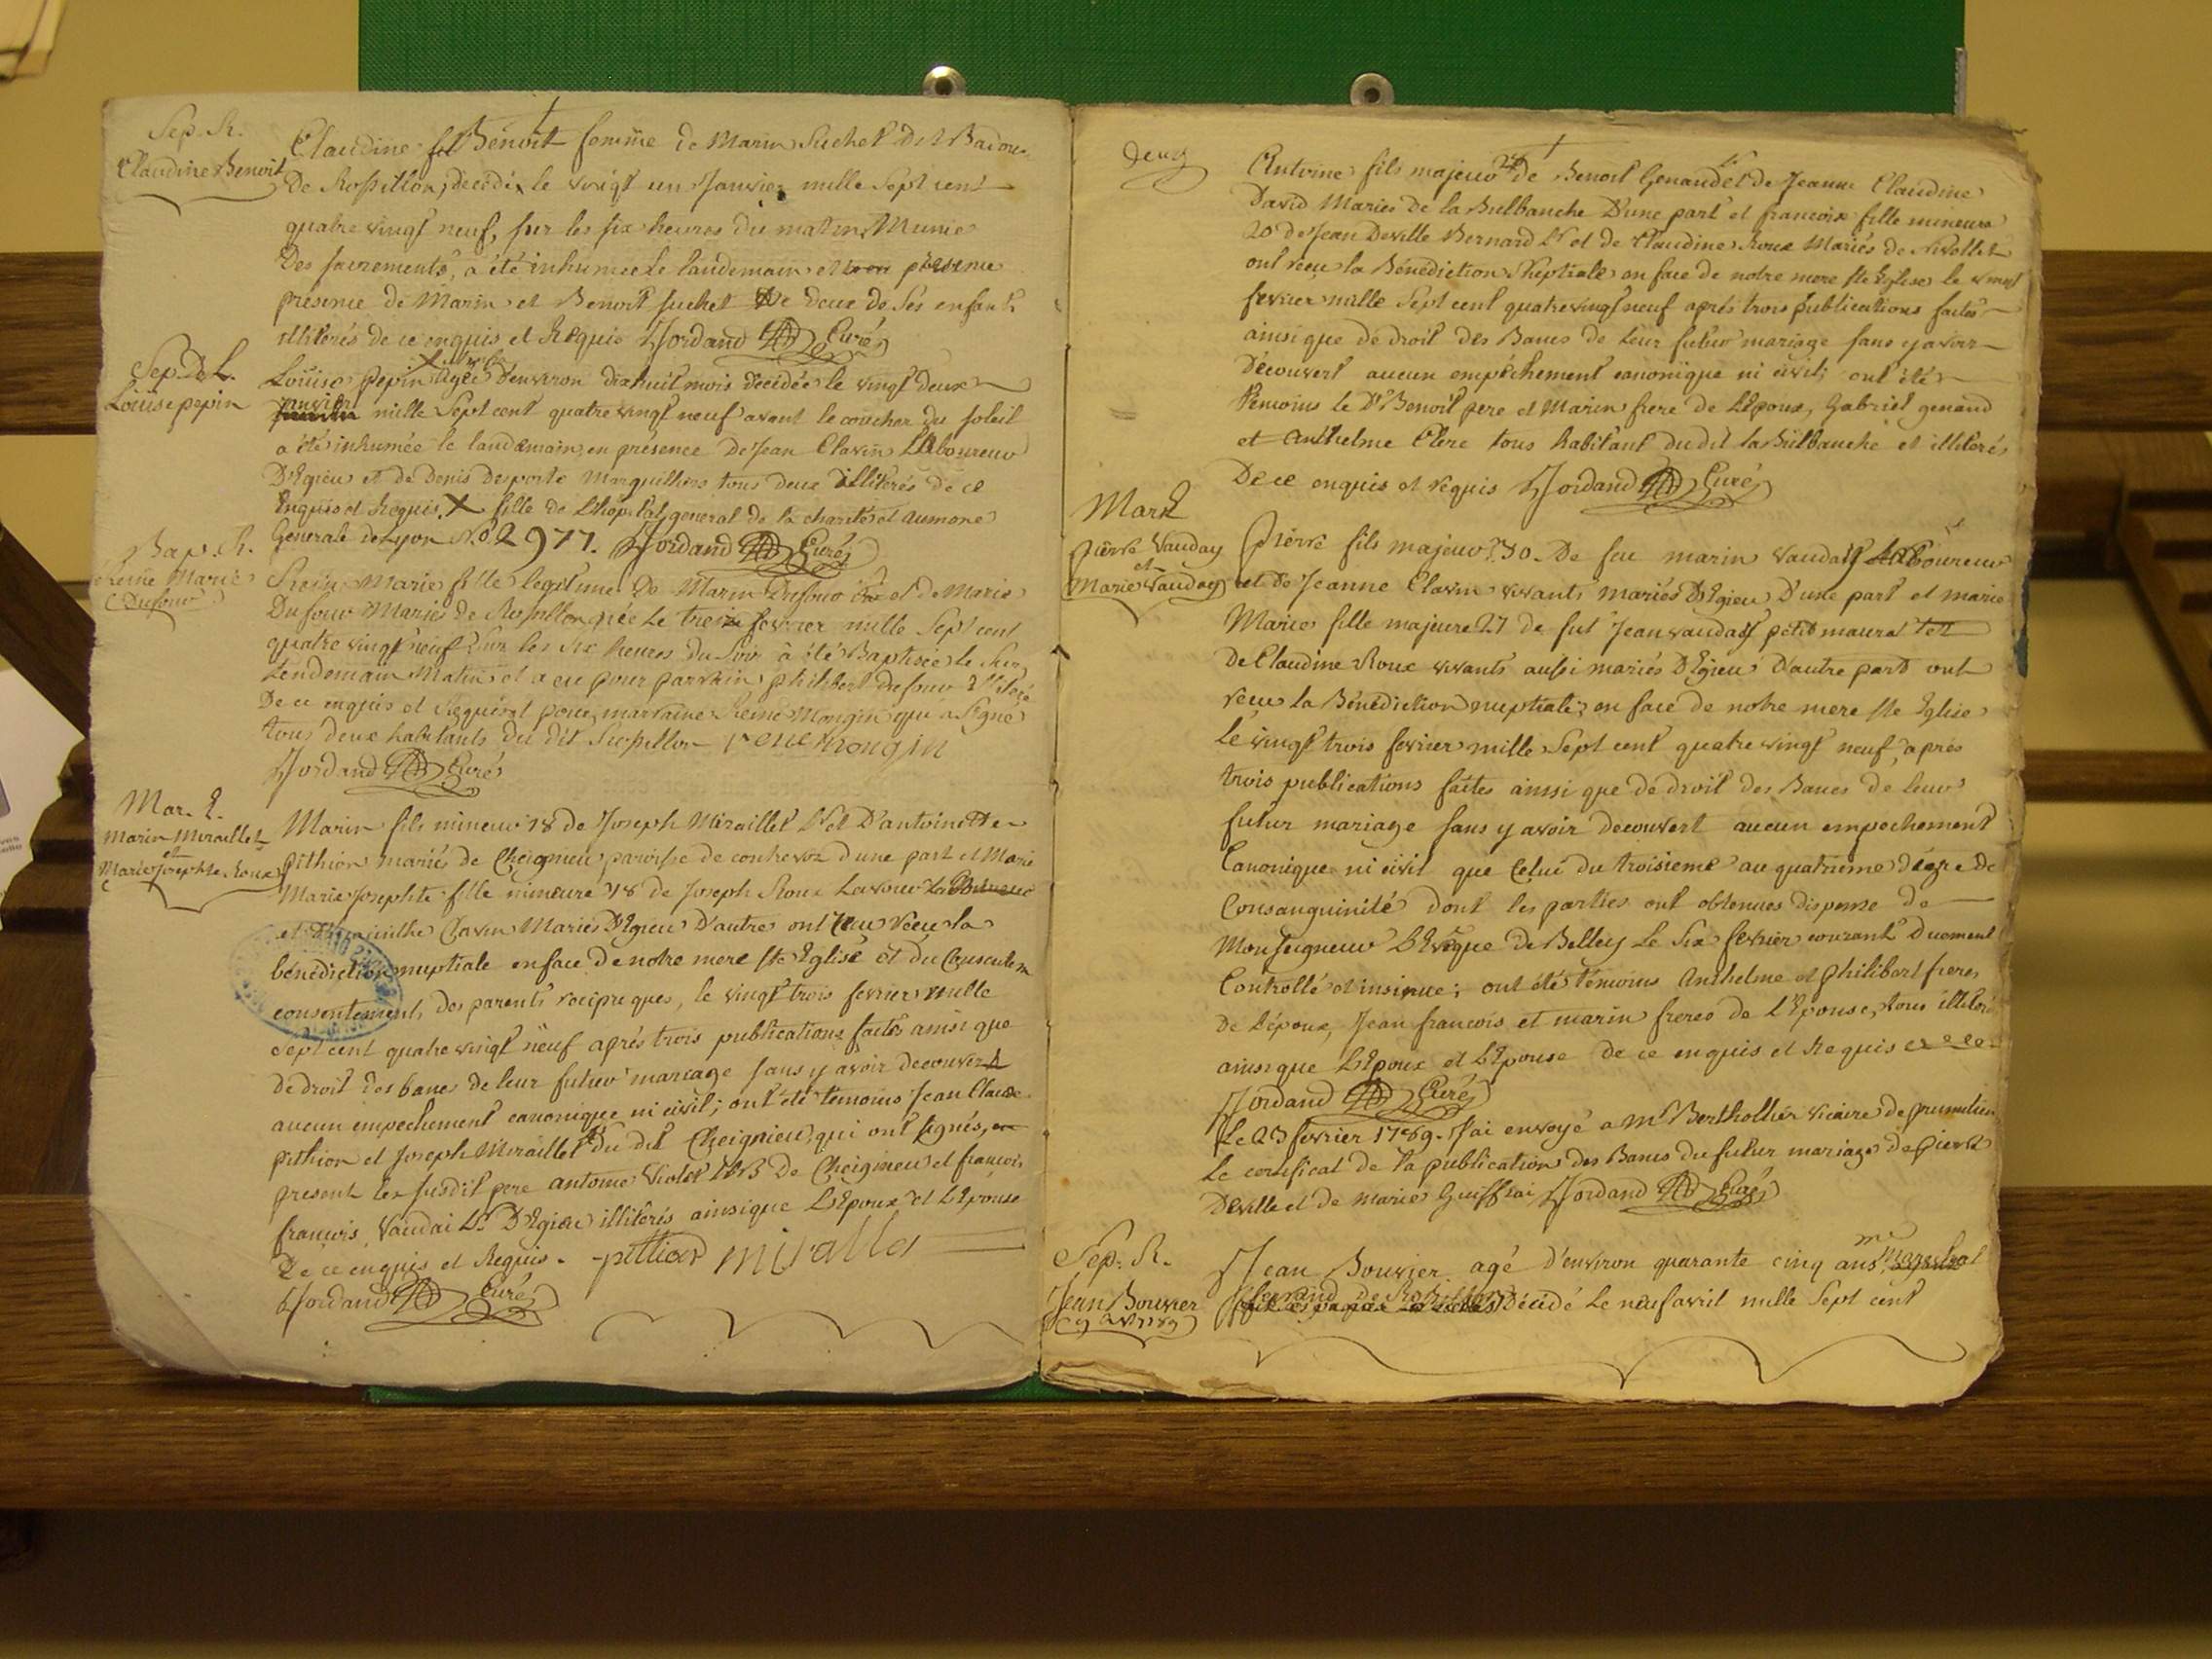 Sep. R.
Claudine Benoit
Claudine Benoit femme de Marin Suchet dit Badou
De Rossillon, decedée le vingt un Janvier mille Sept cent
quatre vingt neuf, sur les six heures du matin, Munie
Des sacrements, a été inhumée le landemain et en presence
présence de Marin et Benoit Suchet de deux de ses enfants
illiterés de ce enquis et Requis Jordand Curé
Sep. d. E.
Louise pepin
Louise Pepin Agée d'environ dixhuit mois décedée le vingt deux
janvier mille Sept cent quatre vingt neuf avant le coucher du soleil
a été inhumée le landemain, en présence de Jean Clavin Laboureur
D'Egieu et de Denis Desporte Marguilliers tous deux illiterés de ce
Enquis et Requis. X fille de L'hopital general de la charité et aumone
Generale de Lyon N.o 2977. Jordand Curé
Bap. R.
Reine Marie
Dufour
Reine Marie fille legitime de Marin Dufour et de Marie
Dufour Mariés de Rossillon, née Le treize fevrier mille Sept cent
quatre vingt neuf sur les six heures du Soir à été Baptisée le Sur
Lendemain Matin et a eu pour parrain philibert Dufour illiteré
De ce enquis et Requis et pour marraine Reine Mongin qui a signé
tous deux habitants du dit Rossillon rene mongin
Jordand Curé
Mar. E.
Marin Miraillet
et
Marie Josephte Roux
Marin fils mineur 18 de Joseph Miraillet Lr et D'antoinette
pithion mariés de Cheignieu, paroisse de contrevoz d'une part et Marie
Marie Josephte fille mineure 18 de Joseph Roux
et Clavin Mariés D'Egieu D'autre ont reçu la
bénédiction nuptiale en face de notre mere Ste Eglise et du
consentement, des parents reciproques, le vingt trois fevrier mille
Sept cent quatre vingt neuf après trois publications faites ainsi que
de droit des bancs de leur futur mariage sans y avoir decouvert
aucun empechement canonique ni civil; ont été temoins Jean Claude
pithion et Joseph Miraillet du dit Cheignieu, qui ont signés,
present les susdit pere antoine Violet de Cheignieu et francois
francois Vaudai Lr. D'Egieu illiterés ainsi que L'Epoux et L'Epouse
De ce enquis et Requis. pittion miralla
Jordand Curé
Deux
Antoine fils majeur 24 de Benoit Genand et de Jeanne Claudine
David Mariés de la Bulbanche D'une part et francoise fille mineure
20 de Jean Deville Bernard Lr et de Claudine Roux Mariés de Nivollet
ont reçu la Bénédiction Nuptiale en face de notre mere Ste Eglise le vingt
fevrier mille Sept cent quatre vingt neuf après trois publications faites
ainsi que de droit des Bancs de leur futur mariage sans y avoir
Découvert aucun empêchement canonique ni civil; ont été
Temoins le Dt Benoit pere et Marin frere de L'Epoux, Gabriel genand
et Anthelme Clerc tous habitant du dit la Bulbanche et illiterés
De ce enquis et requis Jordand Curé
Mar E
Pierre Vauday
et
Marie Vauday
Pierre fils majeur 30 De feu marin Vauday Laboureur
et de Jeanne Clavin vivants mariés D'Egieu D'une part et marie
Marie fille majeure 27 de fut Jean vauday petit maural
De Claudine Roux vivants aussi mariés D'Egieu D'autre part ont
reçu la Bénédiction nuptiale; en face de notre mere Ste Eglise
Le vingt trois fevrier mille Sept cent quatre vingt neuf, après
trois publications faites ainsi que de droit des Bancs de leur
futur mariage sans y avoir decouvert aucun empechement
Canonique ni civil que Celui du troisieme au quatrieme dégre de
Consanguinité dont les parties ont obtenues dispense de
Monseigneur L'Evêque de Belley Le Six fevrier courant duement
Controllé et insinue; ont été témoins Anthelme et philibert freres
De L'époux, Jean francois et marin freres de L'Epouse, tous illiterés
ainsi que L'Epoux et L'Epouse de ce enquis et Requis
Jordand Curé
Le 23 fevrier 1789. J'ai envoyé a Mr Berthollier vicaire de prumilieu
Le certificat de la publication des Bancs du futur mariage de pierre
Deville et de marie Guiffrai Jordand Curé
Sep. R.
Jean Bouvier
9 avr 1789
Jean Bouvier agé d'environ quarante cinq ans, Mareschal
ferrand de Rossillon Décidé Le neuf avril mille Sept cent